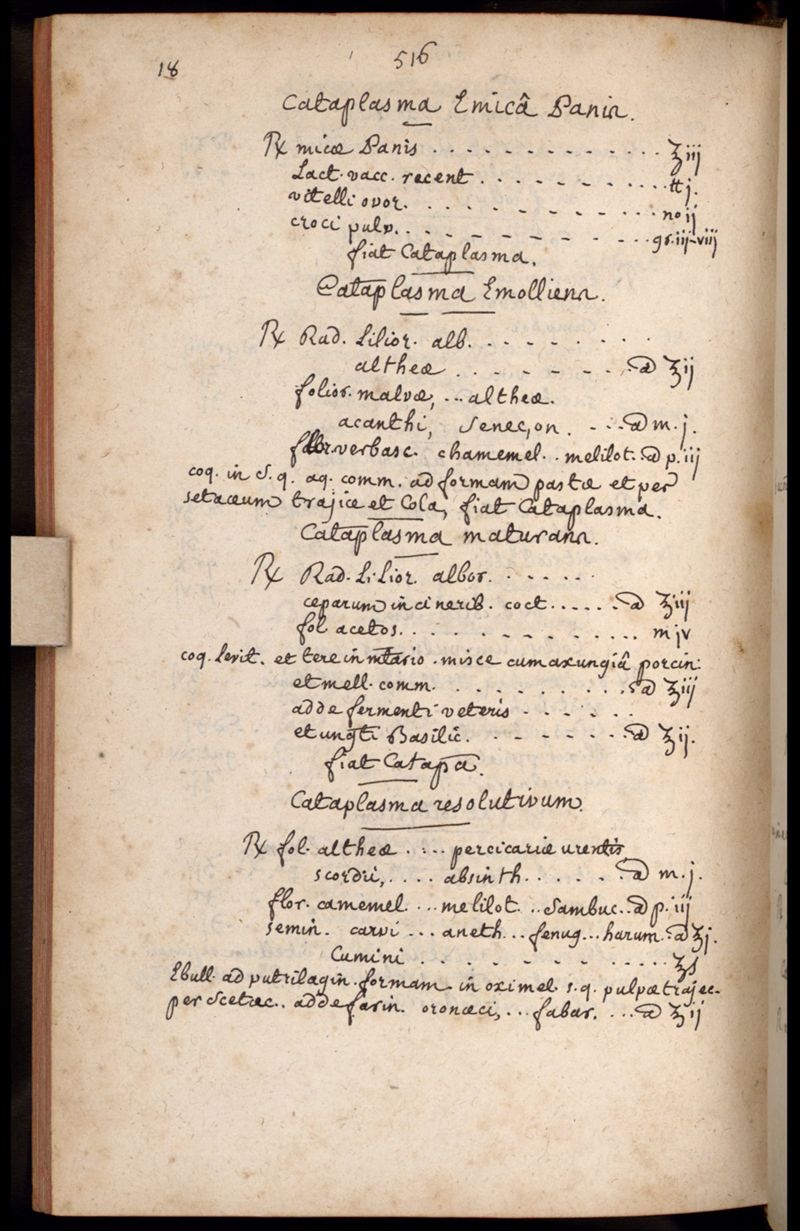 18
516
Cataplasma Emicâ Panis.
℞ micæ Panis . . . . . . . . . . . . ℥iij
Lact. vacc. recent . . . . . . . . . ℔j.
vitelli ovor. . . . . . . . . . . no ij
croci pulv. . . . . . . . . . . gr. iij-viij
fiat Cataplasma.
Cataplasma Emolliens.
℞ Rad. Lilior. alb. . . . . . . . .
altheæ . . . . . . . ā ℥ij
folior. malvæ, ... altheæ.
acanthi, Senec,on. . . . ā m. j.
flor verbasc. chamemel. . melilot. ā p. iij
coq. in S. q. aq. comm. ad formam pastæ et per
setaceum trajice et Cola, fiat Cataplasma.
Cataplasma maturans.
℞ Rad. Lilior. albor. . . . . .
ceparum in cinerib. coct. . . . . . ā ℥iij
fol acetos. . . . . . . . . . . . . m jv
coq. Levit. et tere in mtario . misce cum axungiâ porcin:
et mell. comm. . . . . . . . . . ā ℥iij
adde fermenti veteris . . . . . .
et ungti Basilic. . . . . . . . ā ℥ij.
fiat Catapa.
Cataplasma resolutivum.
℞ fol. altheæ . . . . percicariæ urentis
scordii, . . . . absinth. . . . . . ā m. j.
flor. camemel. . . . melilot. . . Sambuc. . ā p. iij
semin. carvi . . . aneth. . . fenug. . . harum. ā ℥j.
Cumini . . . . . . . . ℥s
Ebull. ad putrilagin. formam. in oximel. s. q. pulpæ trajec.
per Scetac. . adde farin. , . . . fabar. . . . ā ℥ij